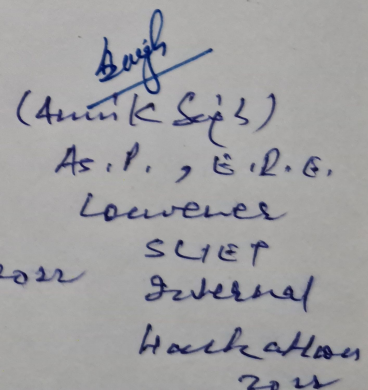 Singh
(Amik Singh)
As.P., E.C.E.
Convener
SLIET
2022 Internal
Hackathon
2022